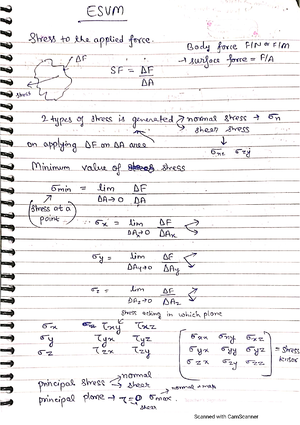 ESVM
Stress to the applied force.
Body force F/N = F/m
→ surface force = F/A
ΔF
SF = ΔF
ΔA
stress
2 types of stress is generated → normal stress → σn
shear stress
on applying ΔF on ΔA area
Minimum value of stress
σmin = lim ΔF
ΔA→0 ΔA
(stress at a
point)
σx = lim ΔF
ΔA→0 ΔAx
σy = lim ΔF
ΔAy→0 ΔAy
σz = lim ΔF
ΔAz→0 ΔAz
stress acting in which plane
σx τxy τxz
σy τyx τyz
σz τzx τzy
σxx σxy σxz
σyx σyy σyz = stress
σzx σzy σzz
principal stress → normal
→ shear
principal plane → τ = 0 σmax.
shear
Scanned with CamScanner